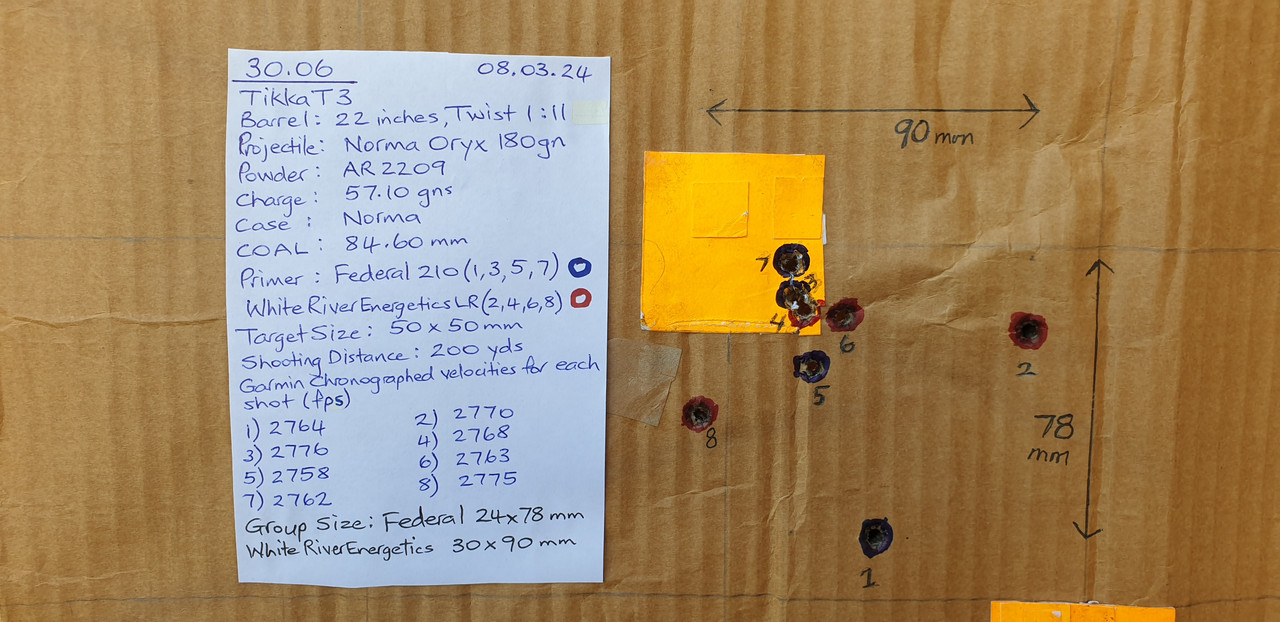 30.06 08.03.24
Tikka T3
Barrel: 22 inches, Twist 1:11
Projectile: Norma Oryx 180gn
Powder: AR 2209
Charge: 57.10 gns
Case: Norma
COAL: 84.60 mm
Primer: Federal 210 (1,3,5,7)
White River Energetics LR (2,4,6,8)
Target Size: 50 x 50 mm
Shooting Distance: 200 yds
Garmin Chronographed velocities for each
shot (fps)
1) 2764 2) 2770
3) 2776 4) 2768
5) 2758 6) 2763
7) 2762 8) 2775
Group Size: Federal 24x78 mm
White River Energetics 30 x 90 mm
90 mm
7
3
4
6
2
5
8
78
mm
1